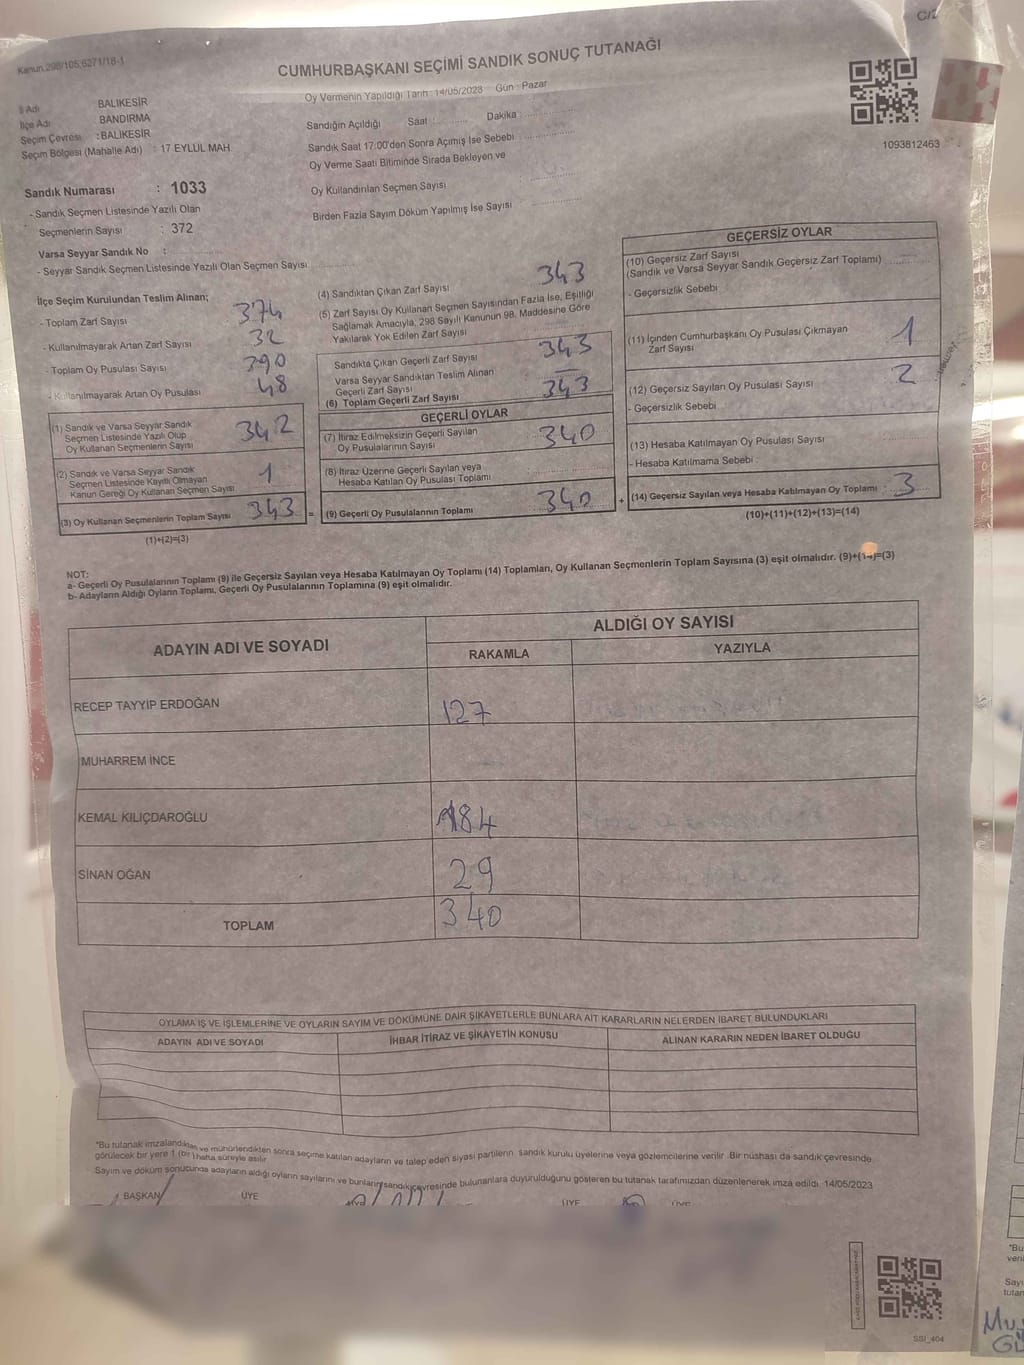 C/2
Kanun.298/105,6271/18-1
CUMHURBAŞKANI SEÇİMİ SANDIK SONUÇ TUTANAĞI
İl Adı BALIKESİR
İlçe Adı BANDIRMA
Seçim Çevresi : BALIKESİR
Seçim Bölgesi (Mahalle Adı) : 17 EYLÜL MAH
Oy Vermenin Yapıldığı Tarih : 14/05/2023 Gün : Pazar
Sandığın Açıldığı Saat :.......... Dakika :..........
Sandık Saat 17:00'den Sonra Açımış İse Sebebi
Oy Verme Saati Bitiminde Sırada Bekleyen ve
Oy Kullandırılan Seçmen Sayısı
Birden Fazla Sayım Döküm Yapılmış İse Sayısı
1093812463
Sandık Numarası : 1033
- Sandık Seçmen Listesinde Yazılı Olan
Seçmenlerin Sayısı : 372
Varsa Seyyar Sandık No :
- Seyyar Sandık Seçmen Listesinde Yazılı Olan Seçmen Sayısı
İlçe Seçim Kurulundan Teslim Alınan;
- Toplam Zarf Sayısı 374
- Kullanılmayarak Artan Zarf Sayısı 32
- Toplam Oy Pusulası Sayısı 390
- Kullanılmayarak Artan Oy Pusulası 48
(1) Sandık ve Varsa Seyyar Sandık
Seçmen Listesinde Yazılı Olup
Oy Kullanan Seçmenlerin Sayısı 342
(2) Sandık ve Varsa Seyyar Sandık
Seçmen Listesinde Kayıtlı Olmayan
Kanun Gereği Oy Kullanan Seçmen Sayısı 1
(3) Oy Kullanan Seçmenlerin Toplam Sayısı 343 =
(1)+(2)=(3)
(4) Sandıktan Çıkan Zarf Sayısı 343
(5) Zarf Sayısı Oy Kullanan Seçmen Sayısından Fazla İse, Eşitliği
Sağlamak Amacıyla, 298 Sayılı Kanunun 98. Maddesine Göre
Yakılarak Yok Edilen Zarf Sayısı
Sandıkta Çıkan Geçerli Zarf Sayısı 343
Varsa Seyyar Sandıktan Teslim Alınan
Geçerli Zarf Sayısı —
(6) Toplam Geçerli Zarf Sayısı 343
GEÇERLİ OYLAR
(7) İtiraz Edilmeksizin Geçerli Sayılan
Oy Pusulalarının Sayısı 340
(8) İtiraz Üzerine Geçerli Sayılan veya
Hesaba Katılan Oy Pusulası Toplamı
(9) Geçerli Oy Pusulalarının Toplamı 340 +
GEÇERSİZ OYLAR
(10) Geçersiz Zarf Sayısı
(Sandık ve Varsa Seyyar Sandık Geçersiz Zarf Toplamı)
- Geçersizlik Sebebi
(11) İçinden Cumhurbaşkanı Oy Pusulası Çıkmayan
Zarf Sayısı 1
(12) Geçersiz Sayılan Oy Pusulası Sayısı 2
- Geçersizlik Sebebi
(13) Hesaba Katılmayan Oy Pusulası Sayısı
- Hesaba Katılmama Sebebi
(14) Geçersiz Sayılan veya Hesaba Katılmayan Oy Toplamı : 3
(10)+(11)+(12)+(13)=(14)
NOT:
a- Geçerli Oy Pusulalarının Toplamı (9) ile Geçersiz Sayılan veya Hesaba Katılmayan Oy Toplamı (14) Toplamları, Oy Kullanan Seçmenlerin Toplam Sayısına (3) eşit olmalıdır. (9)+(14)=(3)
b- Adayların Aldığı Oyların Toplamı, Geçerli Oy Pusulalarının Toplamına (9) eşit olmalıdır.
ADAYIN ADI VE SOYADI ALDIĞI OY SAYISI
RAKAMLA YAZIYLA
RECEP TAYYİP ERDOĞAN 127
MUHARREM İNCE —
KEMAL KILIÇDAROĞLU 184
SİNAN OĞAN 29
TOPLAM 340
OYLAMA İŞ VE İŞLEMLERİNE VE OYLARIN SAYIM VE DÖKÜMÜNE DAİR ŞİKAYETLERLE BUNLARA AİT KARARLARIN NELERDEN İBARET BULUNDUKLARI
ADAYIN ADI VE SOYADI İHBAR İTİRAZ VE ŞİKAYETİN KONUSU ALINAN KARARIN NEDEN İBARET OLDUĞU
*Bu tutanak imzalandıktan ve mühürlendikten sonra seçime katılan adayların ve talep eden siyasi partilerin sandık kurulu üyelerine veya gözlemcilerine verilir. Bir nüshası da sandık çevresinde
görülecek bir yere 1 (bir) hafta süreyle asılır.
Sayım ve döküm sonucunda adayların aldığı oyların sayılarını ve bunların sandık çevresinde bulunanlara duyurulduğunu gösteren bu tutanak tarafımızdan düzenlenerek imza edildi. 14/05/2023
BAŞKAN ÜYE ÜYE ÜYE
SSI_404